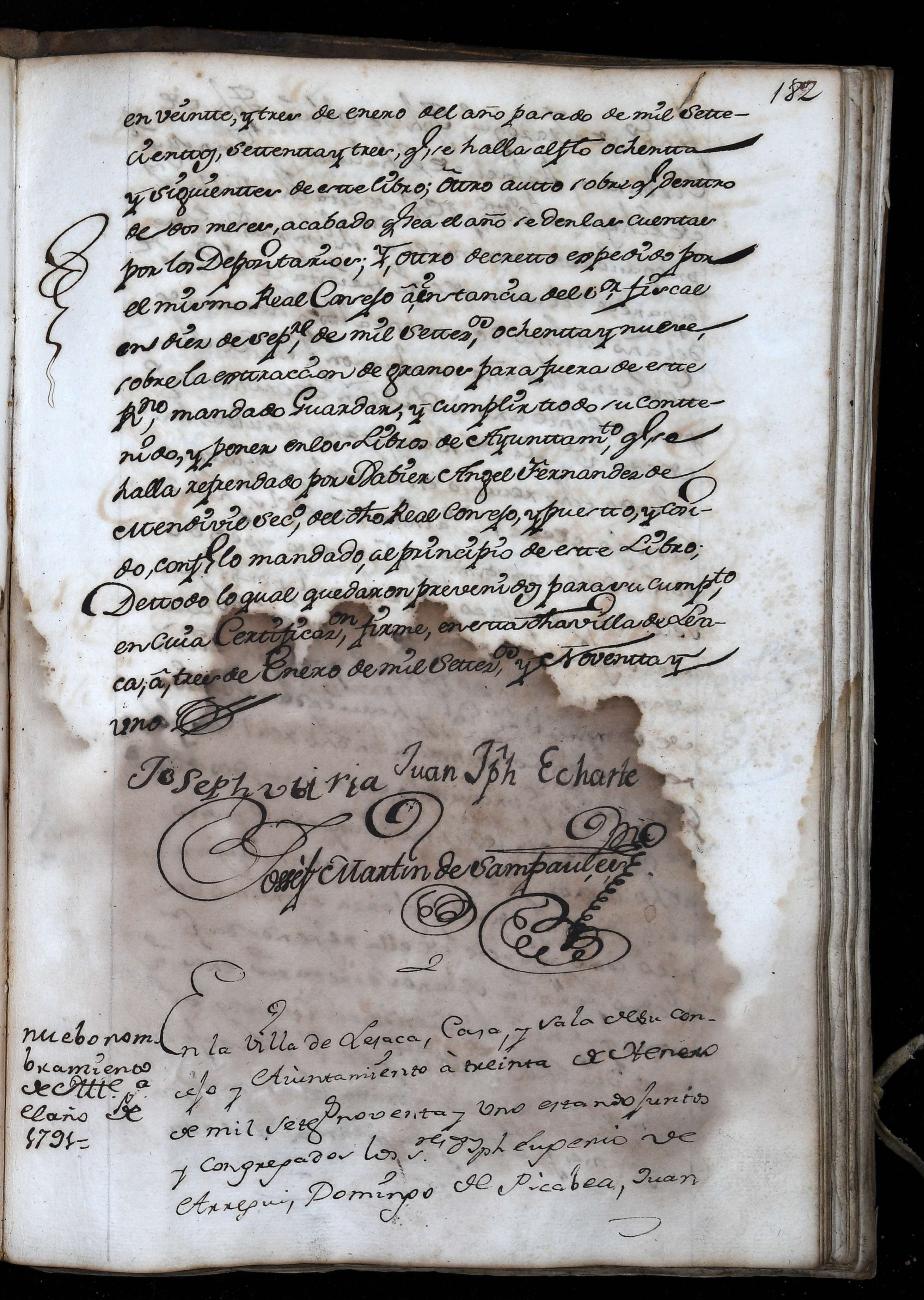 182
en veintte, y tres de enero del año pasado de mil Sette-
cienttos, settentta y tres, q.e se halla al fol.o ochentta
y siguienttes de este libro; Ottro autto sobre q.e denttro
de dos meses, acabado q.e sea el año se den las cuentas
por los Depositarios; Y, ottro decretto expedido por
el mismo Real Consejo â instancia del S.r fiscal
en diez de sep.re de mil Setter.os ochentta y nueve,
sobre la exttraccion de granos para fuera de este
R.no, mandado Guardar, y cumplir ttodo su contte-
nido, y poner en los Libros de Ayunttam.to, q.e se
halla refrendado por Xabier Angel Fernandez de
Mendivil Sec.o, del dho Real Consejo, y puestto, y cosi-
do, conf.e lo mandado, al principio de este Libro;
De ttodo lo qual quedaron prevenidos para su cumpt.o,
en Cuia Certificaz.on, firme, en estta dha villa de Lesa-
ca, â, tres de Enero de mil Setter.os y Noventta y
uno
Joseph vitiria Juan Jph Echarte
Josseff Martin de Sampaul, ess.no
nuebo nom-
bramiento
de Alll.e a
el año de
1791=
En la Villa de Lesaca, Casa, y sala de su con-
cejo y Aiuntamiento à treinta de Henero
de mil setez.os noventa y uno estando juntos
y congregados los s.res D.n Jph Eugenio de
Arregui, Domingo de Picabea, Juan